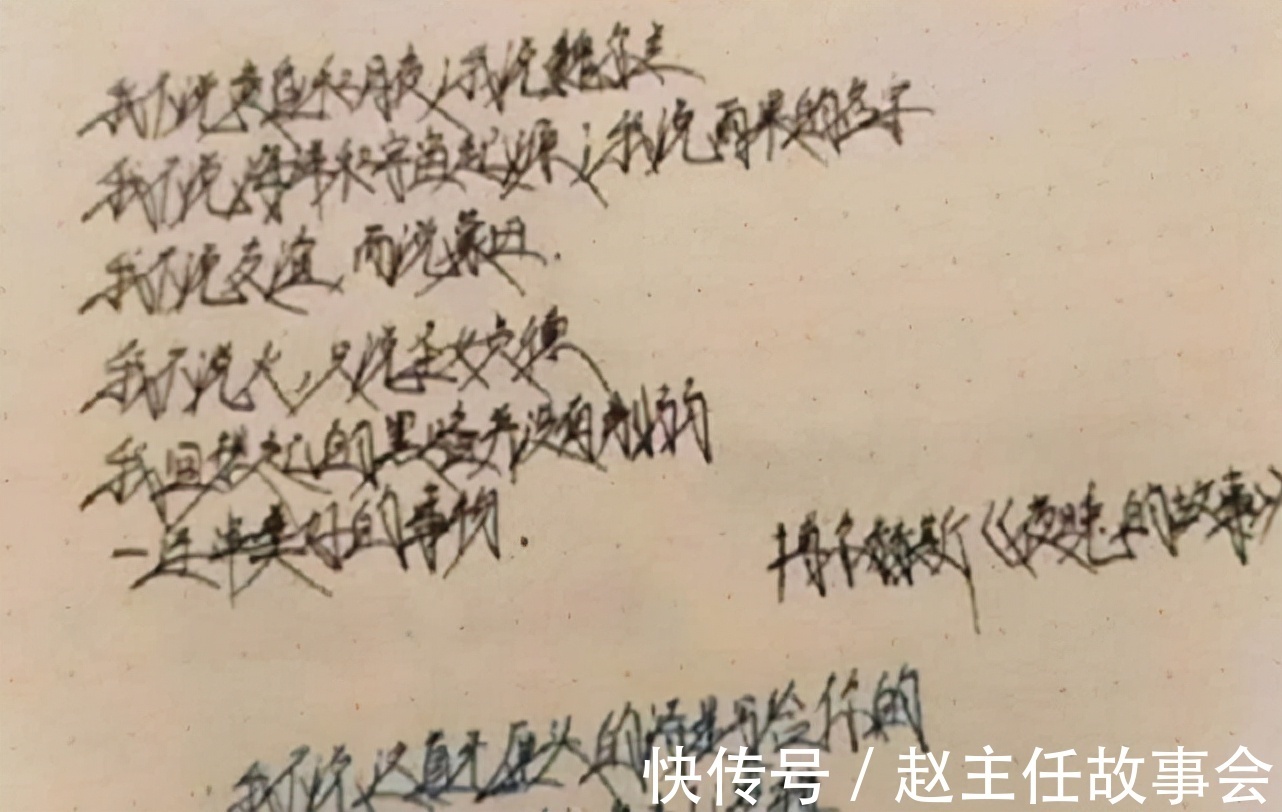 我不说夜莺和月夜；我说魏尔兰
我不说海洋和宇宙起源；我说雨果的名字
我不说友谊，而说蒙田.
我不说火，只说圣女贞德
我回想起的黑暗并没有削
一连串美好的事物.
博尔赫斯《夜晚的故事》
我不说这真 头的诗是写给你的
快传号/赵主任故事会